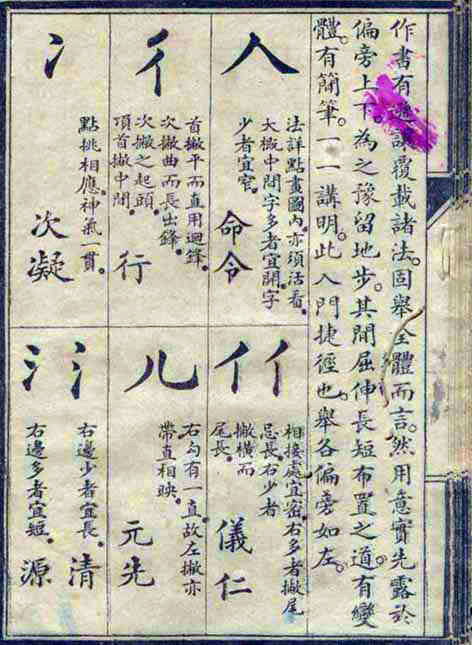 作書有避讓覆載諸法。固舉全體而言。然用意實先露於
偏旁上下。為之豫留地步。其間屈伸長短布置之道。有變
體。有簡筆。一一講明。此入門捷徑也。舉各偏旁如左。
人
法詳點畫圖內。亦須活看。
大概中間字多者宜開。字
少者宜窄。
命令
彳
首撇平而直用迴鋒。
次撇曲而長出鋒。
次撇之起頭。
頂首撇中間。
行
冫
點挑相應。神氣一貫。
次凝
亻亻
相接處宜密。右多者撇尾
忌長。右少者
撇橫而
尾長。
儀仁
儿
右勾有一直。故左撇亦
帶直相映。
元先
氵氵
右邊少者宜長。清
右邊多者宜短。源